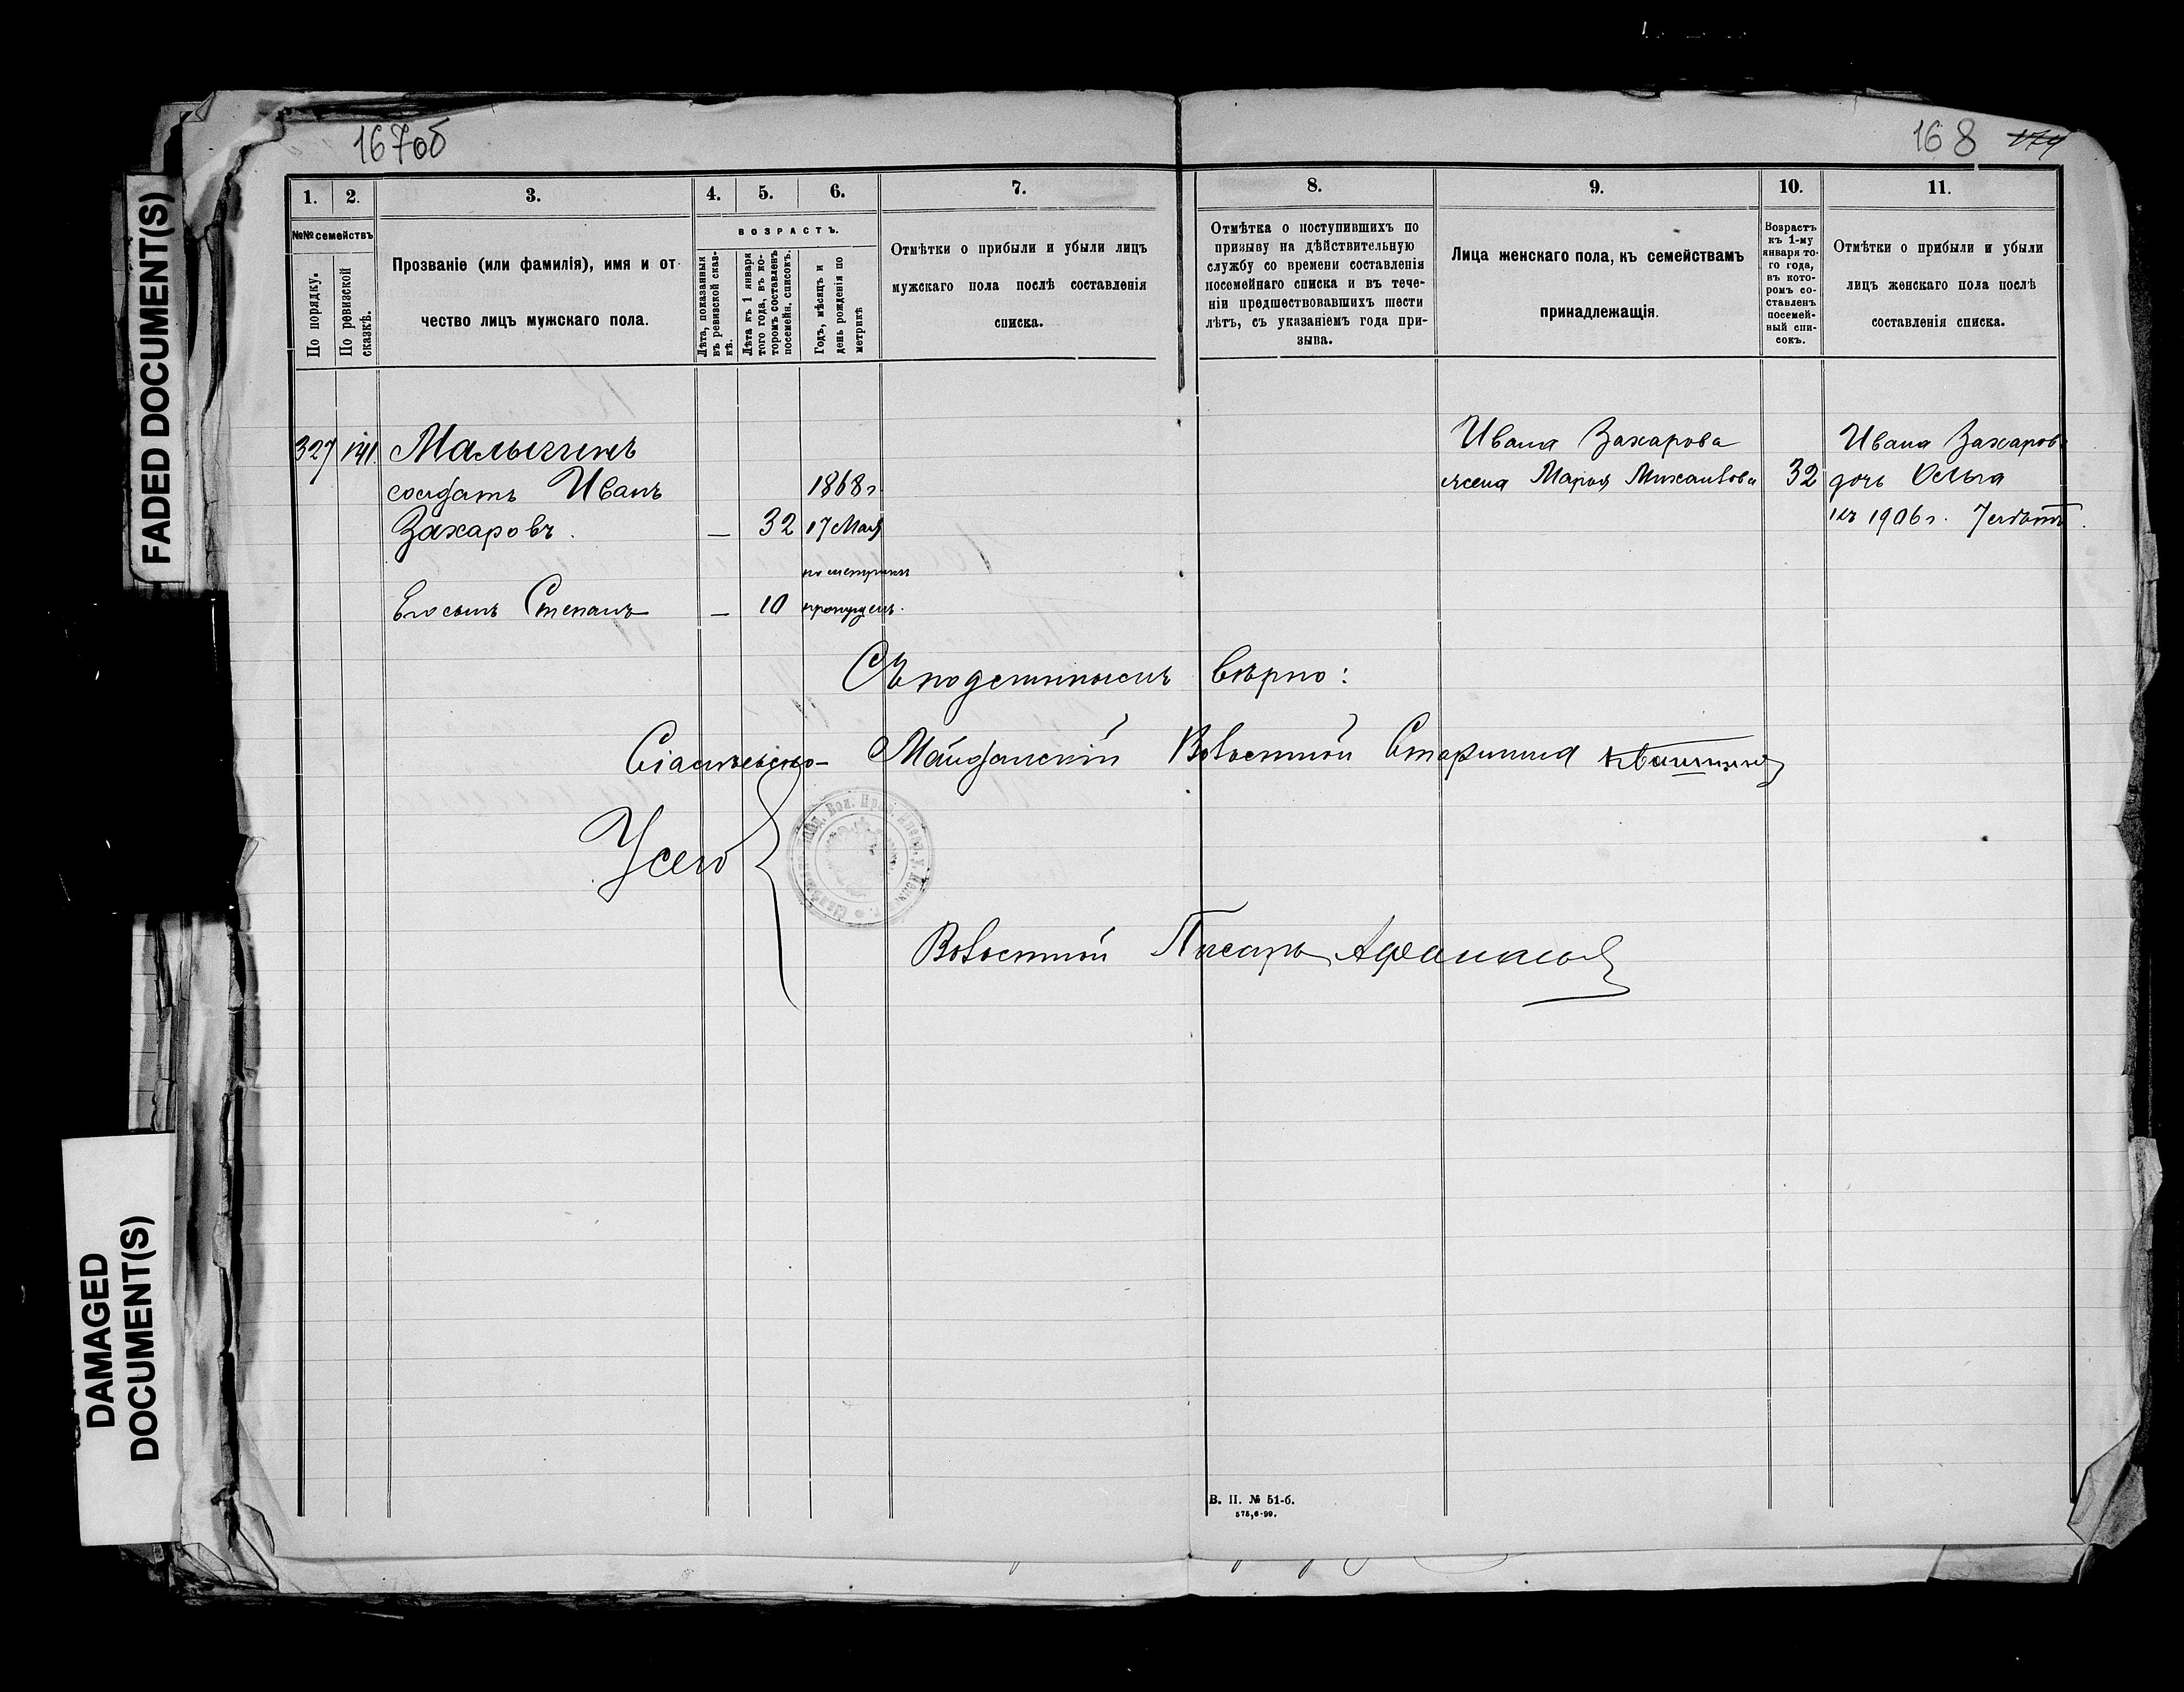 167об
168 174
FADED DOCUMENT(S)
DAMAGED
DOCUMENT(S)
1. 2. 3. 4. 5. 6. 7. 8. 9. 10. 11.
№№ семействъ
По порядку.
По ревизской сказкѣ.
Прозваніе (или фамилія), имя и от-
чество лицъ мужскаго пола.
ВОЗРАСТЪ.
Лѣта, показанныя
въ ревизской сказ-
кѣ.
Лѣта къ 1 января
того года, въ ко-
торомъ составленъ
посемейн. списокъ.
Годъ, мѣсяцъ и
день рожденія по
метрикѣ
Отмѣтки о прибыли и убыли лицъ
мужскаго пола послѣ составленія
списка.
Отмѣтка о поступившихъ по
призыву на дѣйствительную
службу со времени составленія
посемейнаго списка и въ тече-
ніи предшествовавшихъ шести
лѣтъ, съ указаніемъ года при-
зыва.
Лица женскаго пола, къ семействамъ
принадлежащія.
Возрастъ
къ 1-му
января то-
го года,
въ кото-
ромъ со-
ставленъ
посемей-
ный спи-
сокъ.
Отмѣтки о прибыли и убыли
лицъ женскаго пола послѣ
составленія списка.
327 141. Малыгинъ
солдатъ Иванъ 1868 г.
Захаровъ. — 32 17 Мая
по метрики
Его сынъ Степанъ — 10 пропущенъ.
Ивана Захарова
жена Марья Михаилова 32
Ивана Захарова
дочь Ольга
къ 1906 г. 7 лѣтъ.
Съ подлиннымъ вѣрно:
Майданскій Волостной Старшина
Волостной Писарь Афанасьев
В. П. № 51-б.
575,6-99.